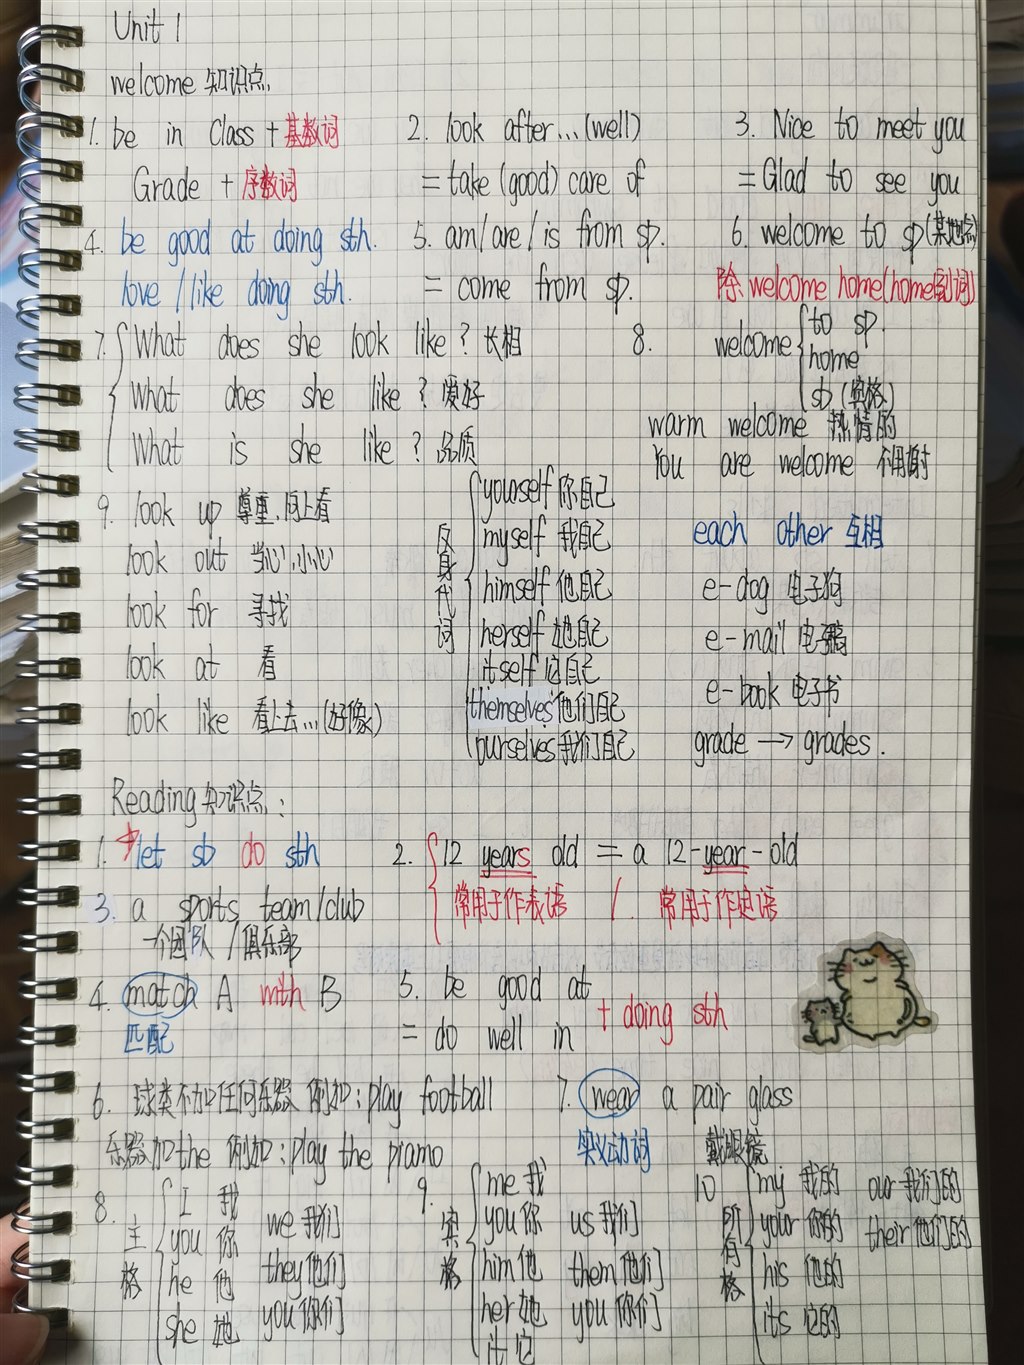 Unit 1
welcome 知识点
1. be in Class + 基数词
Grade + 序数词
2. look after...(well)
= take (good) care of
3. Nice to meet you
= Glad to see you
4. be good at doing sth.
love / like doing sth.
5. am / are / is from sp.
= come from sp.
6. welcome to sp (某地点)
除 welcome home (home副词)
7. What does she look like? 长相
What does she like? 爱好
What is she like? 品质
8. welcome
to sp.
home
sb (宾格)
warm welcome 热情的
You are welcome 不用谢
9. look up 尊重, 向上看
look out 当心, 小心
look for 寻找
look at 看
look like 看上去...(好像)
反身代词
yourself 你自己
myself 我自己
himself 他自己
herself 她自己
itself 它自己
themselves 他们自己
ourselves 我们自己
each other 互相
e-dog 电子狗
e-mail 电子邮
e-book 电子书
grade → grades.
Reading 知识点:
1. let sb do sth
2. 12 years old = a 12-year-old
常用于作表语 / 常用于作定语
3. a sports team/club
一个团队 / 俱乐部
4. match A with B
匹配
5. be good at
= do well in
+ doing sth
6. 球类不加任何乐器 例如: play football
乐器加 the 例如: play the piano
7. wear a pair glass
实义动词 戴眼镜
8. 主格
I 我
you 你
he 他
she 她
we 我们
they 他们
you 你们
9. 宾格
me 我
you 你
him 他
her 她
it 它
us 我们
them 他们
you 你们
10 所有格
my 我的
your 你的
his 他的
its 它的
our 我们的
their 他们的